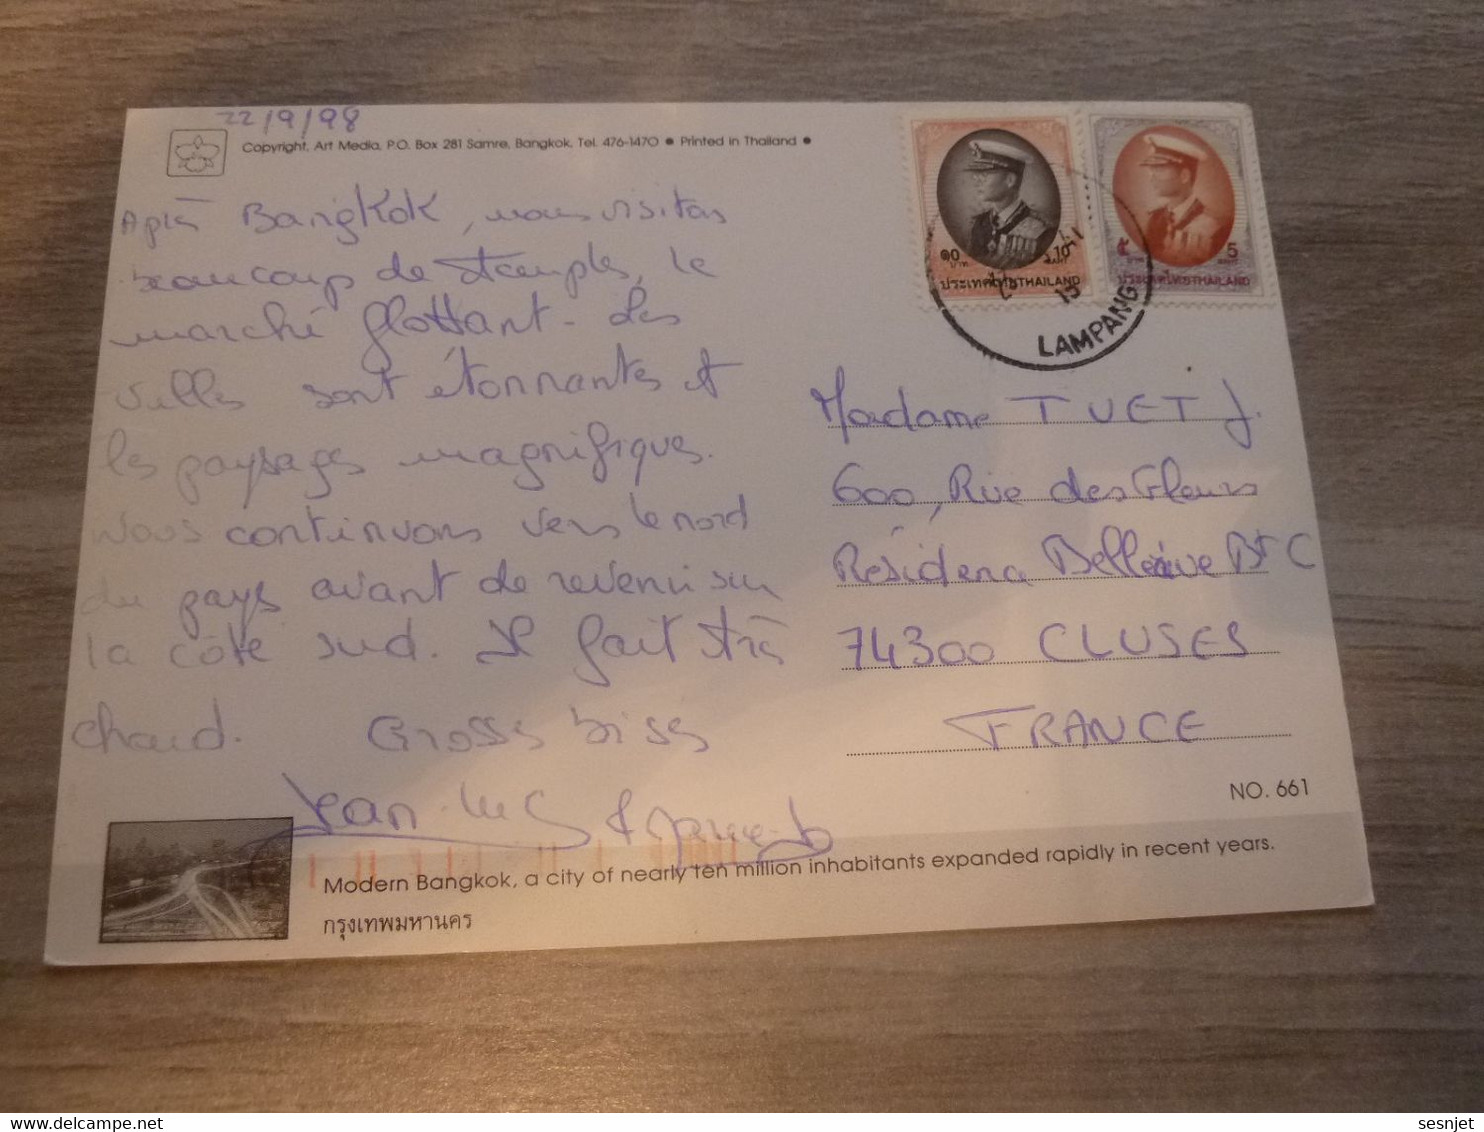 22/9/98
Copyright, Art Media, P.O. Box 281 Samre, Bangkok, Tel. 476-1470 ● Printed in Thailand ●
Après Bangkok, nous visitons
beaucoup de temples, le
marché flottant - Les
villes sont étonnantes et
les paysages magnifiques.
Nous continuons vers le nord
du pays avant de revenir sur
la côte sud. Il fait très
chaud. Grosses bises
Jean-Luc &
๑๐ บาท 10 BAHT
ประเทศไทย THAILAND
๕ บาท 5 BAHT
ประเทศไทย THAILAND
LAMPANG
Madame TUET J.
600, Rue des Fleurs
Résidence Bellerive Bt C
74300 CLUSES
FRANCE
NO. 661
Modern Bangkok, a city of nearly ten million inhabitants expanded rapidly in recent years.
กรุงเทพมหานคร
sesnjet
delcampe.net